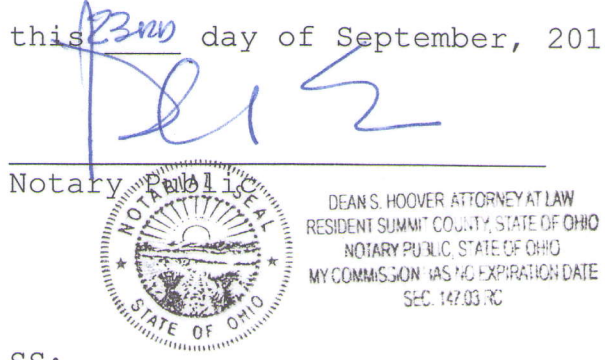 this 23RD day of September, 201
Notary Public
NOTARIAL SEAL
STATE OF OHIO
DEAN S. HOOVER ATTORNEY AT LAW
RESIDENT SUMMIT COUNTY, STATE OF OHIO
NOTARY PUBLIC, STATE OF OHIO
MY COMMISSION HAS NO EXPIRATION DATE
SEC. 147.03 RC
SS: